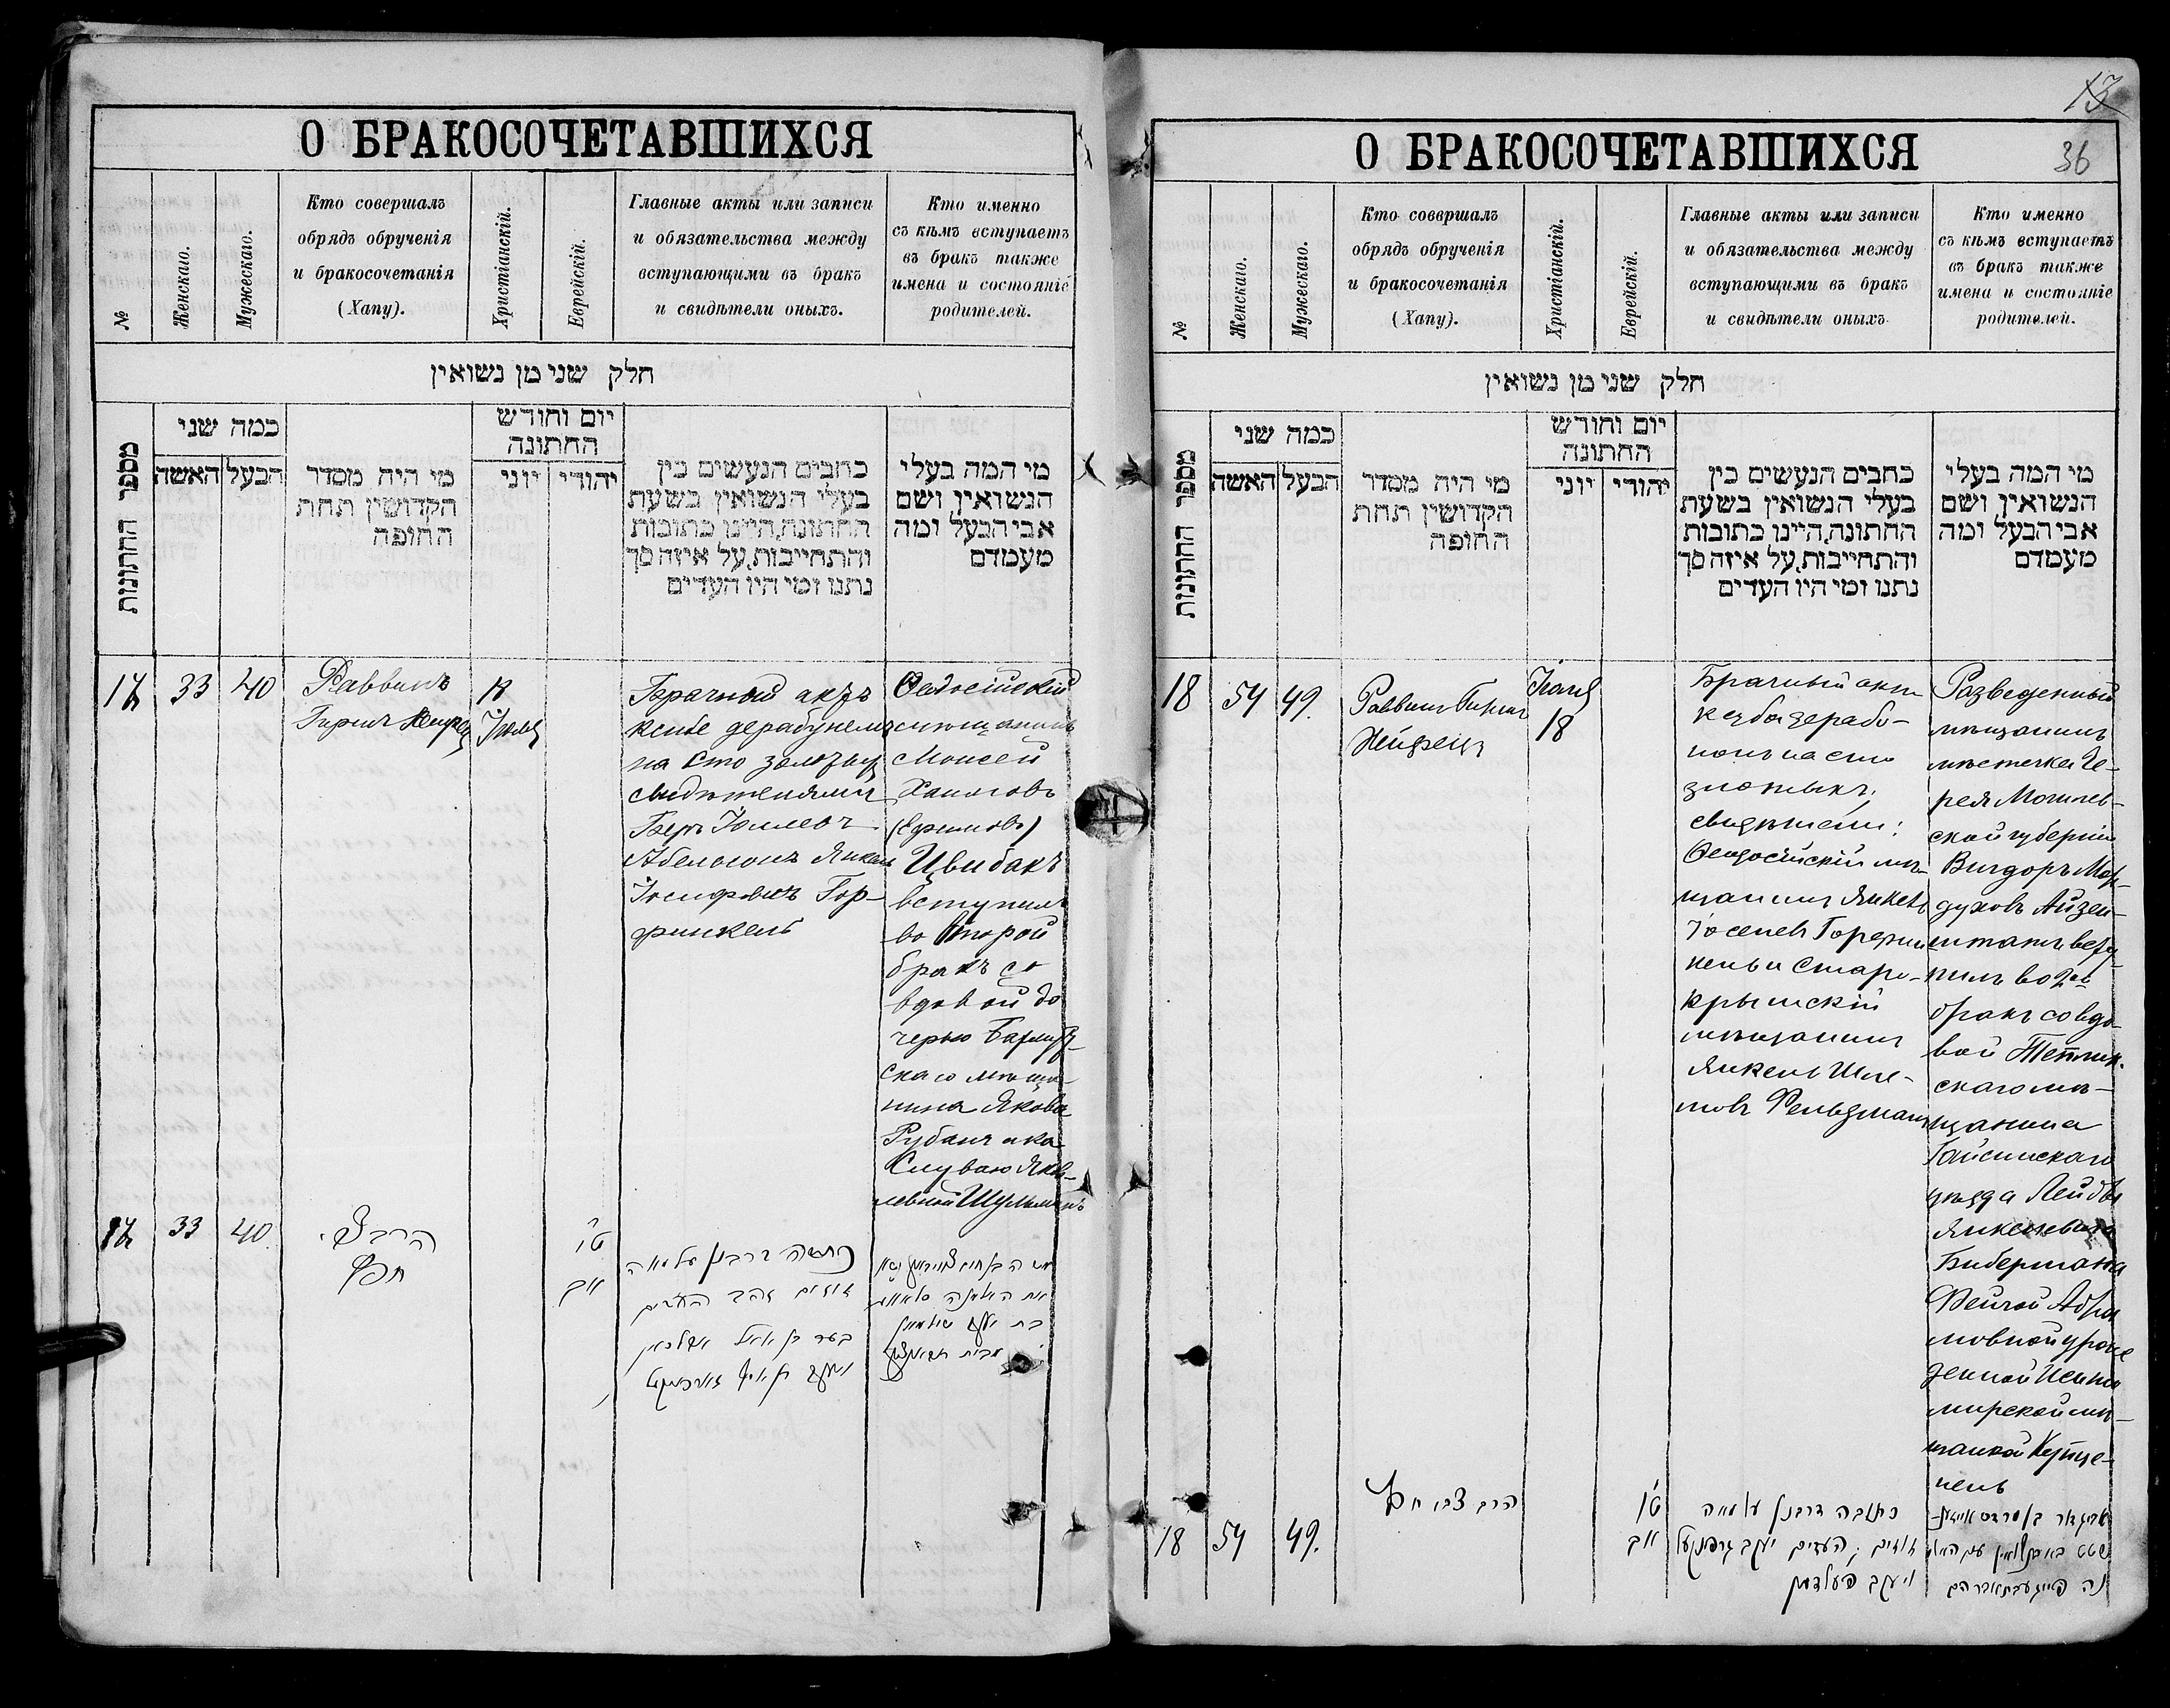 О БРАКОСОЧЕТАВШИХСЯ
№
Женскаго.
Мужескаго.
Кто совершалъ
обрядъ обрученія
и бракосочетанія
(Хапу).
Христіанскій.
Еврейскій.
Главные акты или записи
и обязательства между
вступающими въ бракъ
и свидѣтели оныхъ.
Кто именно
съ кѣмъ вступаетъ
въ бракъ также
имена и состояніе
родителей.
חלק שני מן נשואין
מספר החתונות
כמה שני
האשה
הבעל
מי היה מסדר
הקדושין תחת
החופה
יום וחודש
החתונה
יוני
יהודי
כתבים הנעשים בין
בעלי הנשואין בשעת
החתונה, היינו כתובות
והתחייבות, על איזה סך
נתנו ומי היו העדים
מי המה בעלי
הנשואין ושם
אבי הבעל ומה
מעמדם
17
33
40
Раввинъ
Гиршъ
Іюля
Брачный актъ
на сто золотыхъ
свидѣтелями
Беръ
Абельсонъ Янкель
Іосифовичъ Гор-
финкель
Ѳеодосійскій
мѣщанинъ
Моисей
Хаимовъ
(Ефимовъ)
Цвибакъ
вступилъ
во второй
бракъ со
вдовой до
черью
скаго мѣща-
нина Якова
Яков-
левной Шульманъ
17
33
40.
הרב
חפץ
ט"ו
אב
כתובה דרבנן על מאה
זוזים זהב העדים
בער בן
בת יעקב שולמאן
13
О БРАКОСОЧЕТАВШИХСЯ
36
№
Женскаго.
Мужескаго.
Кто совершалъ
обрядъ обрученія
и бракосочетанія
(Хапу).
Христіанскій.
Еврейскій.
Главные акты или записи
и обязательства между
вступающими въ бракъ
и свидѣтели оныхъ.
Кто именно
съ кѣмъ вступаетъ
въ бракъ также
имена и состояніе
родителей.
חלק שני מן נשואין
מספר החתונות
כמה שני
האשה
הבעל
מי היה מסדר
הקדושין תחת
החופה
יום וחודש
החתונה
יוני
יהודי
כתבים הנעשים בין
בעלי הנשואין בשעת
החתונה, היינו כתובות
והתחייבות, על איזה סך
נתנו ומי היו העדים
מי המה בעלי
הנשואין ושם
אבי הבעל ומה
מעמדם
18
54
49.
Раввинъ Гиршъ
Хейфецъ
Іюля
18
Брачный актъ
кезба дерабо-
нонъ на сто
злотыхъ,
свидѣтели:
Ѳеодосійскій мѣ-
щанинъ Янкель
Іоселевъ Горфин
кель и Старо-
крымскій
мѣщанинъ
Янкель Шле-
мовъ Фельдманъ
Разведенный
мѣщанинъ
мѣстечка Че-
рея Могилев-
ской губерніи
Вигдоръ Мор-
духовъ Айзен-
штатъ всту-
пилъ во 2ой
бракъ со вдо-
вой Теплик.
скаго мѣ-
щанина
Гайсинскаго
уѣзда Лейбы
Янкелевича
Бибермана
Фейгой Абра
мовной урож
денной
мирской мѣ-
щанкой
18
54
49.
הרב צבי חפץ
ט"ו
אב
כתובה דרבנן על מאה
זוזים, העדים יעקב גרפינקעל
ויעקב פעלדמן
אביגדור בן מרדכי אייזענ-
שטט
נה פייגע בת אברהם